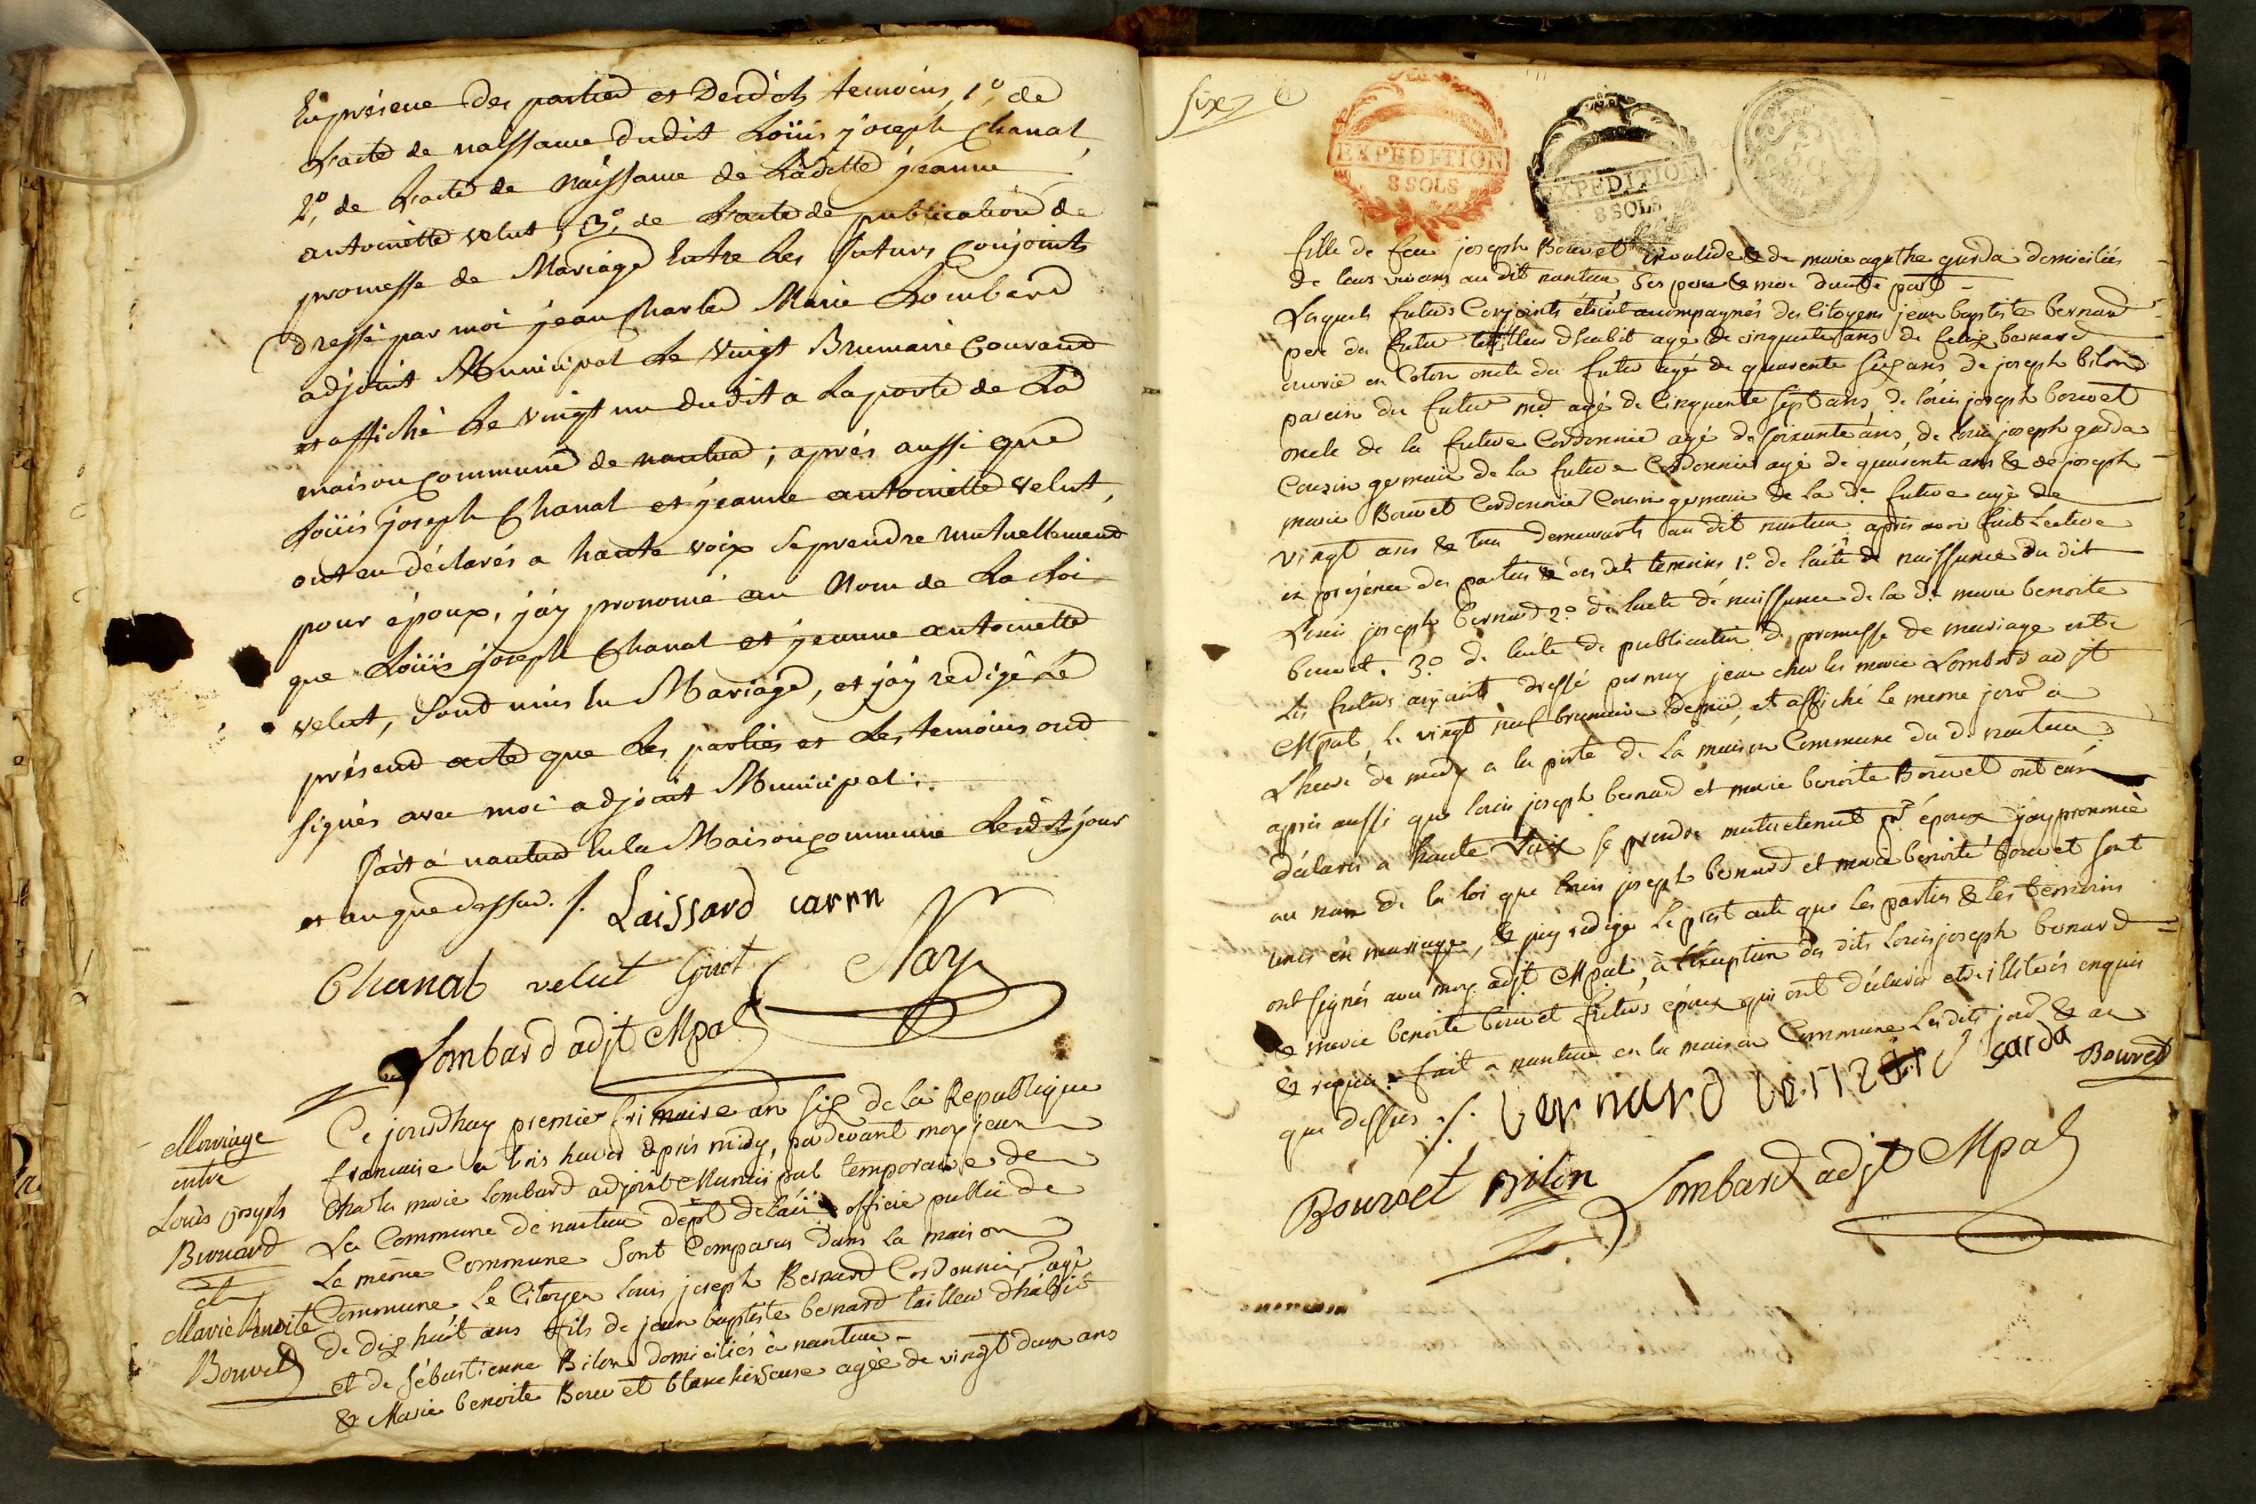 En présence des parties et desdits temoins, 1º, de
L'acte de naissance dudit Loüis joseph Chanal,
2º, de L'acte de naissance de Ladette jeanne
antoinette velut, 3º, de L'acte de publication de
promesse de Mariage Entre Les futurs Conjoints
dressé par moi jean Charles Marie Lombard
adjoint Municipal Le Vingt Brumaire Courand
et affiché Le vingt un dudit a Laporte de La
maison Commune de nantua ; aprés aussi que
Loüis joseph Chanal et jeanne antoinette velut,
ont eu déclarés a haute voix Se prendre mutuellement
pour époux, j'ay prononcé au Nom de La Loi
que Loüis joseph Chanal et jeanne antoinette
velut, Sond unis En Mariage, et j'ay redigé Le
présend acte que Les parties et Les temoins ond
signés avec moi adjoint Municipal :
fait a nantua En La Maison Commune Lesdits jour
et an que dessus. /. Laissard carrn
Chanal velut Guiot Nay
Lombard adjt Mpal
Mariage
entre
Louis joseph
Bernard
et
Marie Benoite
Bouvet
Ce jourdhuy premier frimaire an six de la Republique
francaise a trois heures aprés midy, pardevant moy jean
Charles marie Lombard adjoint Municipal temporaire de
La Commune de nantua dépt de L'ain officier public de
La meme Commune Sont Comparus dans La maison
Commune Le Citoyen Louis joseph Bernard Cordonnier agé
de dix huit ans fils de jean baptiste bernard tailleur d'habit
et de Sébastienne Bilon domiciliés à nantua
& Marie benoite Bouvet blanchisseuse agée de vingt deux ans
six
EXPEDITION
8 SOLS
EXPEDITION
8 SOLS
fille de feu joseph Bouvet invalide & de marie agathe garda domiciliés
de leurs vivans au dit nantua, Ses pere & mere d'autre part
Lesquels futurs Conjoints étoint accompagnés des Citoyens jean baptiste bernard
pere du futur tailleur d'habit agé de cinquante ans de felix bernard
ouvrié en Coton oncle du futur agé de quarente six ans de joseph bilon
parein du futur md agé de Cinquente Sept ans, de louis joseph bouvet
oncle de la future Cordonnié agé de soixante ans, de louis joseph garda
Cousin germain de la future Cordonnier agé de quarente ans & de joseph
marie Bouvet Cordonnié Cousin germain de La de future agé de
vingt ans & tous demeurants au dit nantua aprés avoir fait Lecture
en présence des parties & des dits temoins 1º. de l'acte de naissance du dit
Louis joseph bernard 2º. de l'acte de naissance de la de marie benoite
bouvet. 3º. de l'acte de publication de promesse de mariage entre
les futurs conjoints dressé par moy jean charles marie Lombard adjt
Mpal Le vingt neuf brumaire dernié, et affiché Le meme jour a
L'heure de midy a la porte de La maison Commune du d. nantua
aprés aussi que louis joseph bernard et marie benoite Bouvet ont eus
déclarés a haute Voix se prendre mutuelement pr époux j'ay prononcé
au nom de la loi que louis joseph bernard et marie benoite bouvet sont
unis en mariage, & j'ay redigé Le prest acte que les parties & les temoins
ont signés avec moy adjt Mpal, à L'éxception des dits louis joseph bernard
& marie benoite bouvet futurs époux qui ont déclarés etre illitérés enquis
& requis. fait a nantua en la maison Commune Lesdits jour & an
que dessus ./. bernard garda Bouvet
Bouvet Bilon Lombard adjt Mpal